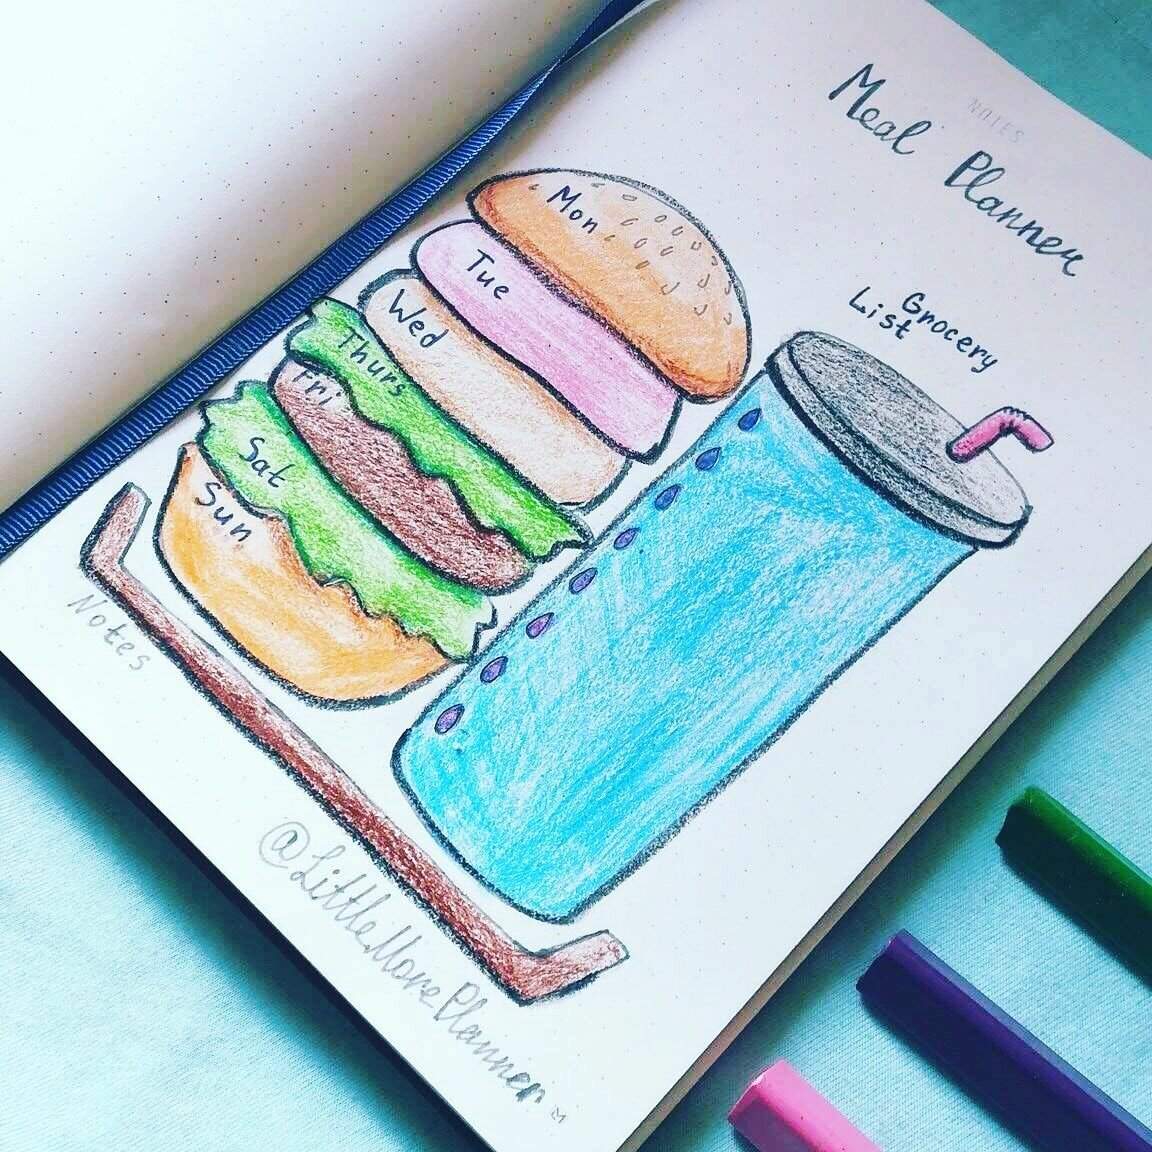 NOTES
Meal Planner
Grocery
List
Mon
Tue
Wed
Thurs
Fri
Sat
Sun
Notes
@LittleMorePlanner
M